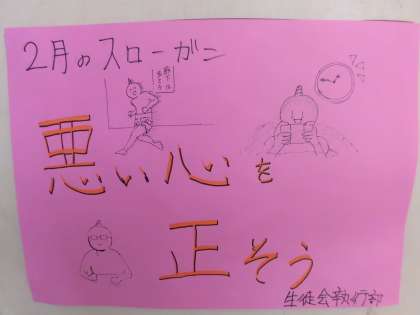 2月のスローガン
悪い心を
正そう
生徒会執行部